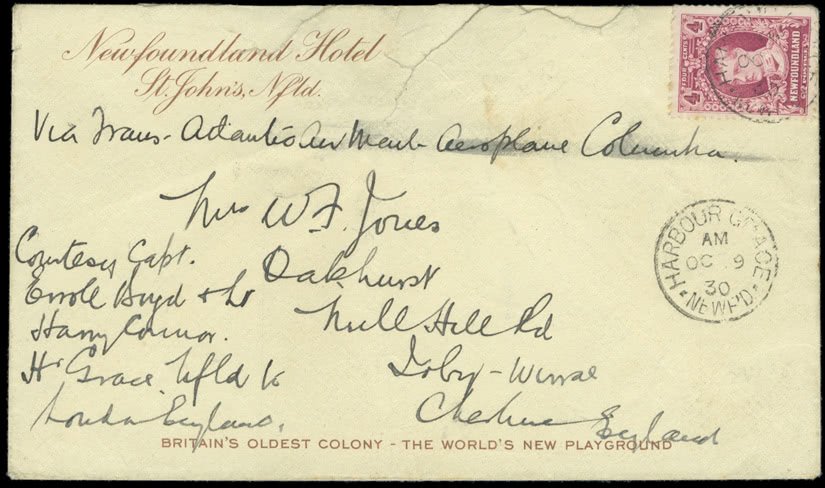 Newfoundland Hotel
St. John's, Nfld.
4 FOUR CENTS 4
NEWFOUNDLAND
POSTAGE
Via Trans-Atlantic Air Mail - Aeroplane Columbia.
Mrs W. F. Jones
Oakhurst
Mill Hill Rd
Irby - Wirral
Cheshire
England
Courtesy Capt.
Erroll Boyd & Lt
Harry Connor.
Hr Grace Nfld to
London England.
HARBOUR GRACE
AM
OC 9
30
NEWF'D
BRITAIN'S OLDEST COLONY - THE WORLD'S NEW PLAYGROUND